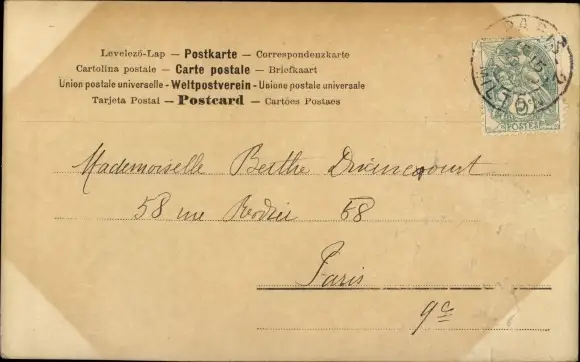 Levelező-Lap — Postkarte — Correspondenzkarte
Cartolina postale — Carte postale — Briefkaart
Union postale universelle - Weltpostverein - Unione postale universale
Tarjeta Postal — Postcard — Cartões Postaes
PARIS
5
POSTES
Mademoiselle Berthe
58 rue 58
Paris
9e